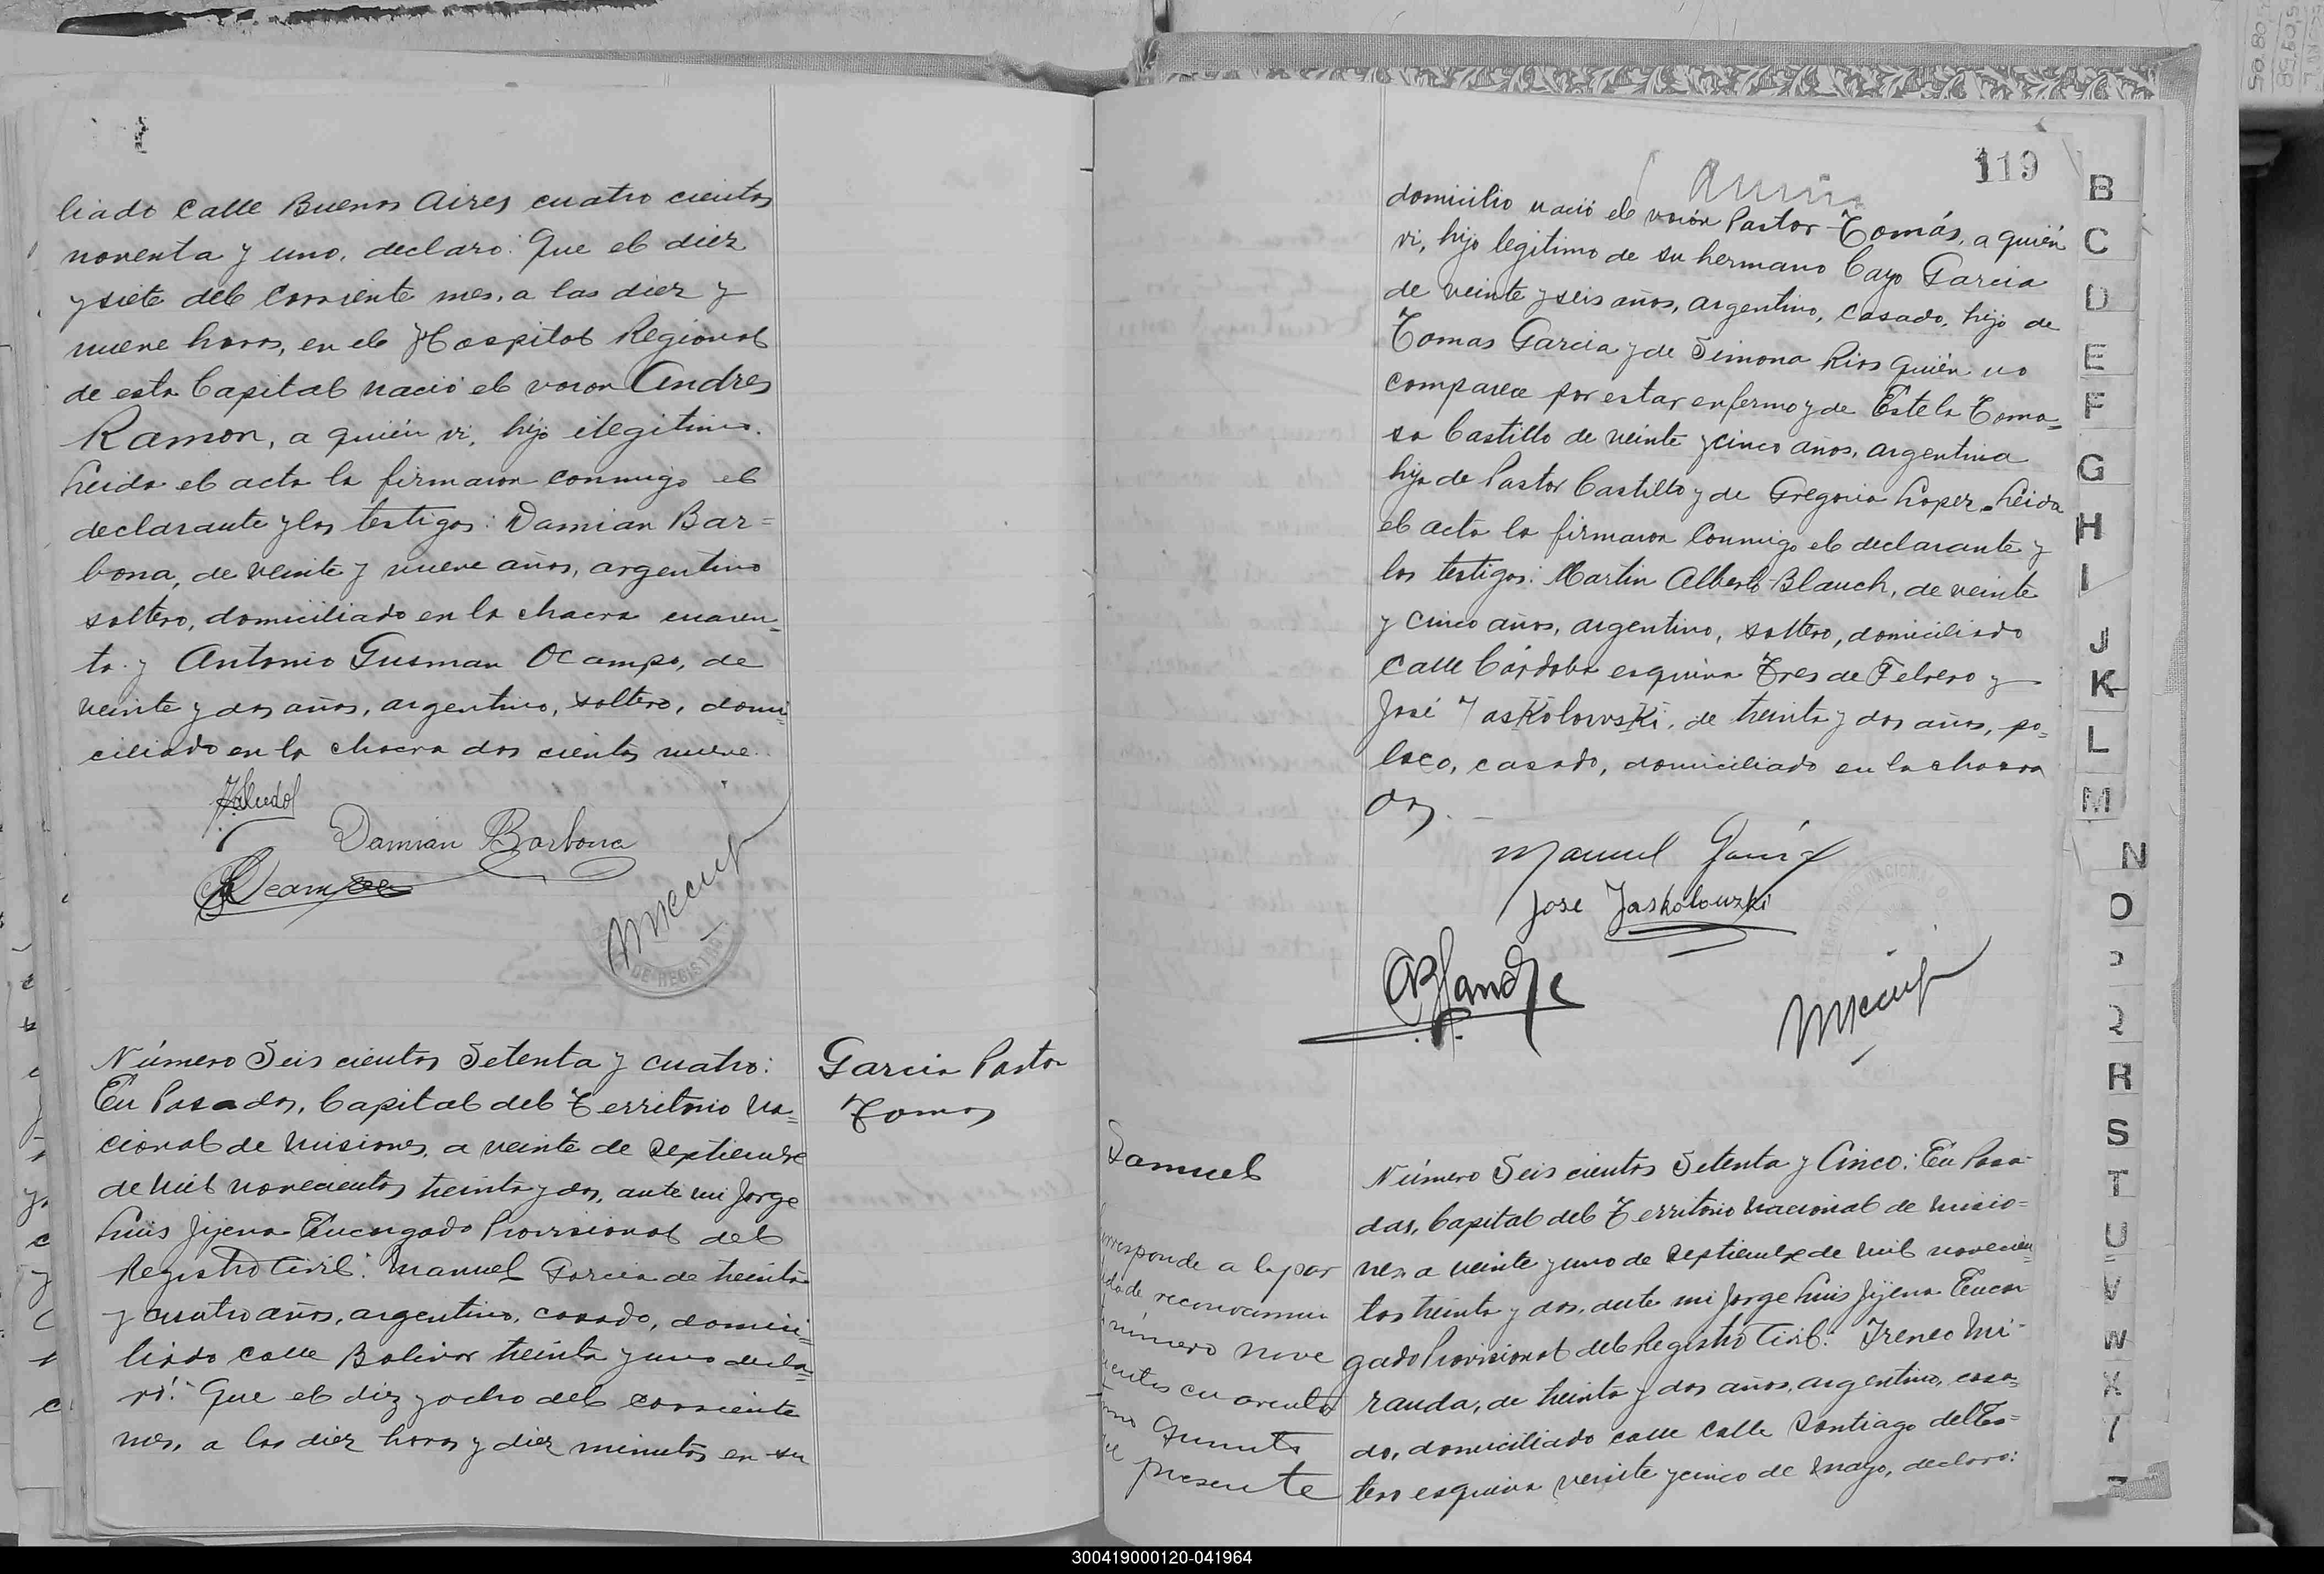 liado calle Buenos Aires cuatro cientos
noventa y uno, declaro: Que el diez
y siete del corriente mes, a las diez y
nueve horas, en el Hospital Regional
de esta Capital nació el varon Andres
Ramon, a quién vi, hijo ilegitimo.
Leida el acta la firmaron conmigo el
declarante y los testigos: Damian Bar=
bona, de veinte y nueve años, argentino
soltero, domiciliado en la chacra cuaren=
ta y Antonio Gusman Ocampo, de
veinte y dos años, argentino, soltero, domi=
ciliado en la chacra dos cientos nueve.
Damian Barbona
DE REGISTRO
Número Seis cientos Setenta y cuatro:
En Posadas, Capital del Territorio Na=
cional de Misiones, a veinte de Septiembre
de mil novecientos treinta y dos, ante mi Jorge
Luis Jijena Encargado Provisional del
Registro Civil: Manuel Garcia de treinta
y cuatro años, argentino, casado, domici=
liado calle Bolivar treinta y uno decla=
ró: Que el diez y ocho del corriente
mes, a las diez horas y diez minutos en su
Garcia Pastor
Tomas
119
domicilio nació el varón Pastor Tomás, a quién
vi, hijo legitimo de su hermano Cayo Garcia
de veinte y seis años, argentino, casado, hijo de
Tomas Garcia y de Simona Rios quién no
comparece por estar enfermo y de Estela Toma=
sa Castillo de veinte y cinco años, argentina
hija de Pastor Castillo y de Gregoria Lopez. Leida
el acta la firmaron conmigo el declarante y
los testigos: Martin Alberto Blauch, de veinte
y cinco años, argentino, soltero, domiciliado
calle Córdoba esquina Tres de Febrero y
José Jaskolowski, de treinta y dos años, po=
laco, casado, domiciliado en la chacra
dos.
Manuel García
Jose Jaskolowski
Samuel
Corresponde a la par
tida de reconocimien
número nove
cientos cuarenta
tomo quinto
presente
Número Seis cientos Setenta y Cinco: En Posa=
das, Capital del Territorio Nacional de Misio=
nes, a veinte y uno de Septiembre de mil novecien
tos treinta y dos, ante mi Jorge Luis Jijena Encar
gado Provisional del Registro Civil: Ireneo Mi=
randa, de treinta y dos años, argentino, casa=
do, domiciliado calle calle Santiago del Es=
tero esquina veinte y cinco de Mayo, declaró:
B
C
D
E
F
G
H
I
J
K
L
M
N
O
R
S
T
U
V
W
X
300419000120-041964